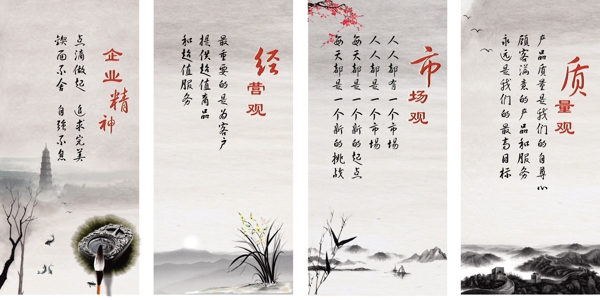 企业精神
点滴做起 追求完美
锲而不舍 自强不息
经营观
最重要的是为客户
提供超值商品
和超值服务
市场观
人人都有一个市场
人人都是一个市场
每天都是一个新的起点
每天都是一个新的挑战
质量观
产品质量是我们的自尊心
顾客满意的产品和服务
永远是我们的最高目标